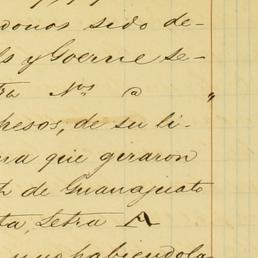 donos sido de-
ls y Goerne se-
ra Nos a "
pesos, de su li-
ma que giraron
th de Guanajuato
ta, Letra A
muo habiendola